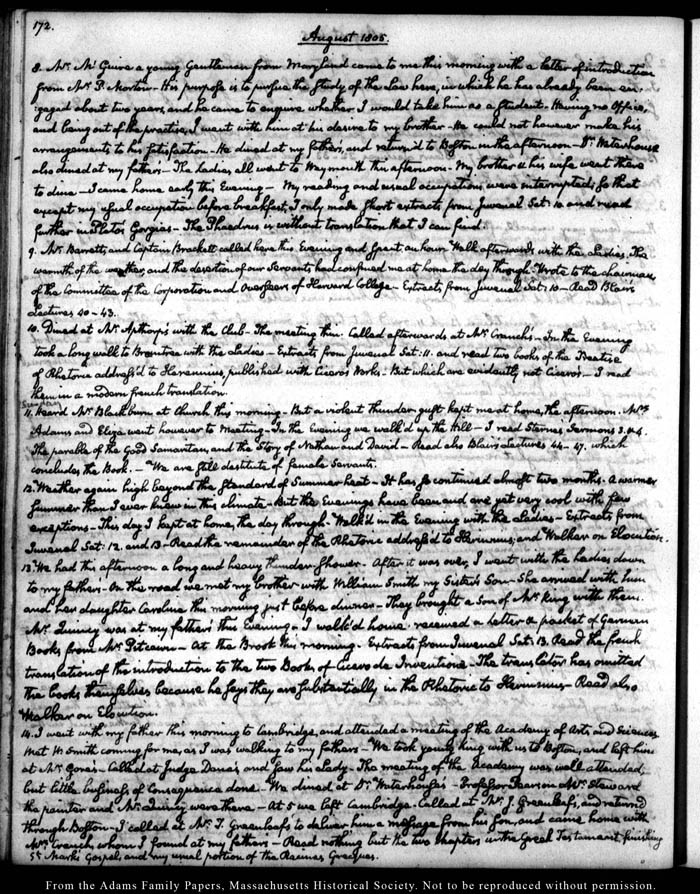 172.
August 1805.
8. Mr. McGuire a young Gentleman from Maryland came to me this morning with a letter of introduction
from Mr. P. Morton — His purpose is to pursue the Study of the Law here, in which he has already been en-
gaged about two years, and he came to enquire whether I would take him as a student. Having no Office,
and being out of the practice, I went with him at his desire to my brother — He could not however make his
arrangements to his satisfaction. He dined at my father's, and return'd to Boston in the afternoon — Dr. Waterhouse
also dined at my father's — The Ladies all went to Weymouth this afternoon. My brother & his wife went there
to dine — I came home early this Evening — My reading and usual occupations were interrupted; so that
except my usual occupation before breakfast, I only made short extracts from Juvenal Sat: 10 and read
further in Plato's Gorgias — The Phaedrus is without translation that I can find.
9. Mr. Barrett, and Captain Brackett called here this Evening and spent an hour. Walk afterwards with the Ladies. The
warmth of the weather, and the desertion of our Servants had confined me at home the day through. Wrote to the chairman
of the Committee of the Corporation and Overseers of Harvard College — Extracts from Juvenal Sat: 10 — Read Blair's
Lectures 40 — 43.
10. Dined at Mr. Apthorp's with the Club — The meeting thin. Called afterwards at Mr. Cranch's — In the Evening
took a long walk to Braintree with the Ladies — Extracts from Juvenal Sat: 11. and read two books of the Treatise
of Rhetoric address'd to Herennius, published with Cicero's Works — But which are evidently not Cicero's — I read
them in a modern french translation.
Sunday
11. Heard Mr. Blackburn at Church this morning — But a violent thunder gust kept me at home, the afternoon. Mrs.
Adams and Eliza went however to Meeting — In the Evening we walk'd up the Hill — I read Sterne's Sermons 3. & 4.
The parable of the Good Samaritan, and the Story of Nathan and David — Read also Blair's Lectures 44 — 47. which
concludes the Book. — We are still destitute of female Servants.
12. Weather again high beyond the Standard of Summer heat — It has so continued almost two months. A warmer
Summer than I ever knew in this climate — But the Evenings have been and are yet very cool with few
exceptions — This day I kept at home, the day through — Walk'd in the Evening with the Ladies — Extracts from
Juvenal Sat: 12. and 13 — Read the remainder of the Rhetoric address'd to Herennius; and Walker on Elocution.
13. We had this afternoon a long and heavy thunder shower — After it was over, I went with the Ladies down
to my father's. On the road we met my brother with William Smith my Sister's Son — She arrived with him
and her daughter Caroline this morning just before dinner — They brought a Son of Mr. King with them.
Mr. Quincy was at my father's this Evening. I walk'd home. received a letter & packet of German
Books from Mr. Pitcairn — At the Brook this morning — Extracts from Juvenal Sat: 13. Read the french
translation of the introduction to the two Books of Cicero de Inventione — The translator has omitted
the books themselves because he says they are substantially in the Rhetoric to Herennius — Read also
Walker on Elocution.
14. I went with my father this morning to Cambridge, and attended a meeting of the Academy of Arts, and Sciences
Met W. Smith coming for me, as I was walking to my father's — We took young King with us to Boston, and left him
at Mr. Gore's — Called at Judge Dana's and saw his Lady. The meeting of the Academy was well attended;
but little business of Consequence done. We dined at Dr. Waterhouse's — Professor Pearson Mr. Steward
the painter and Mr. Quincy were there — At 5 we left Cambridge. Called at Mr. J. Greenleaf's, and returned
through Boston — I called at Mr. T. Greenleaf's to deliver him a message from his Son, and came home with
Mrs. French, whom I found at my father's — Read nothing but the two chapters in the Greek Testament finishing
St. Mark's Gospel, and my usual portion of the Racines Grecques.
From the Adams Family Papers, Massachusetts Historical Society. Not to be reproduced without permission.